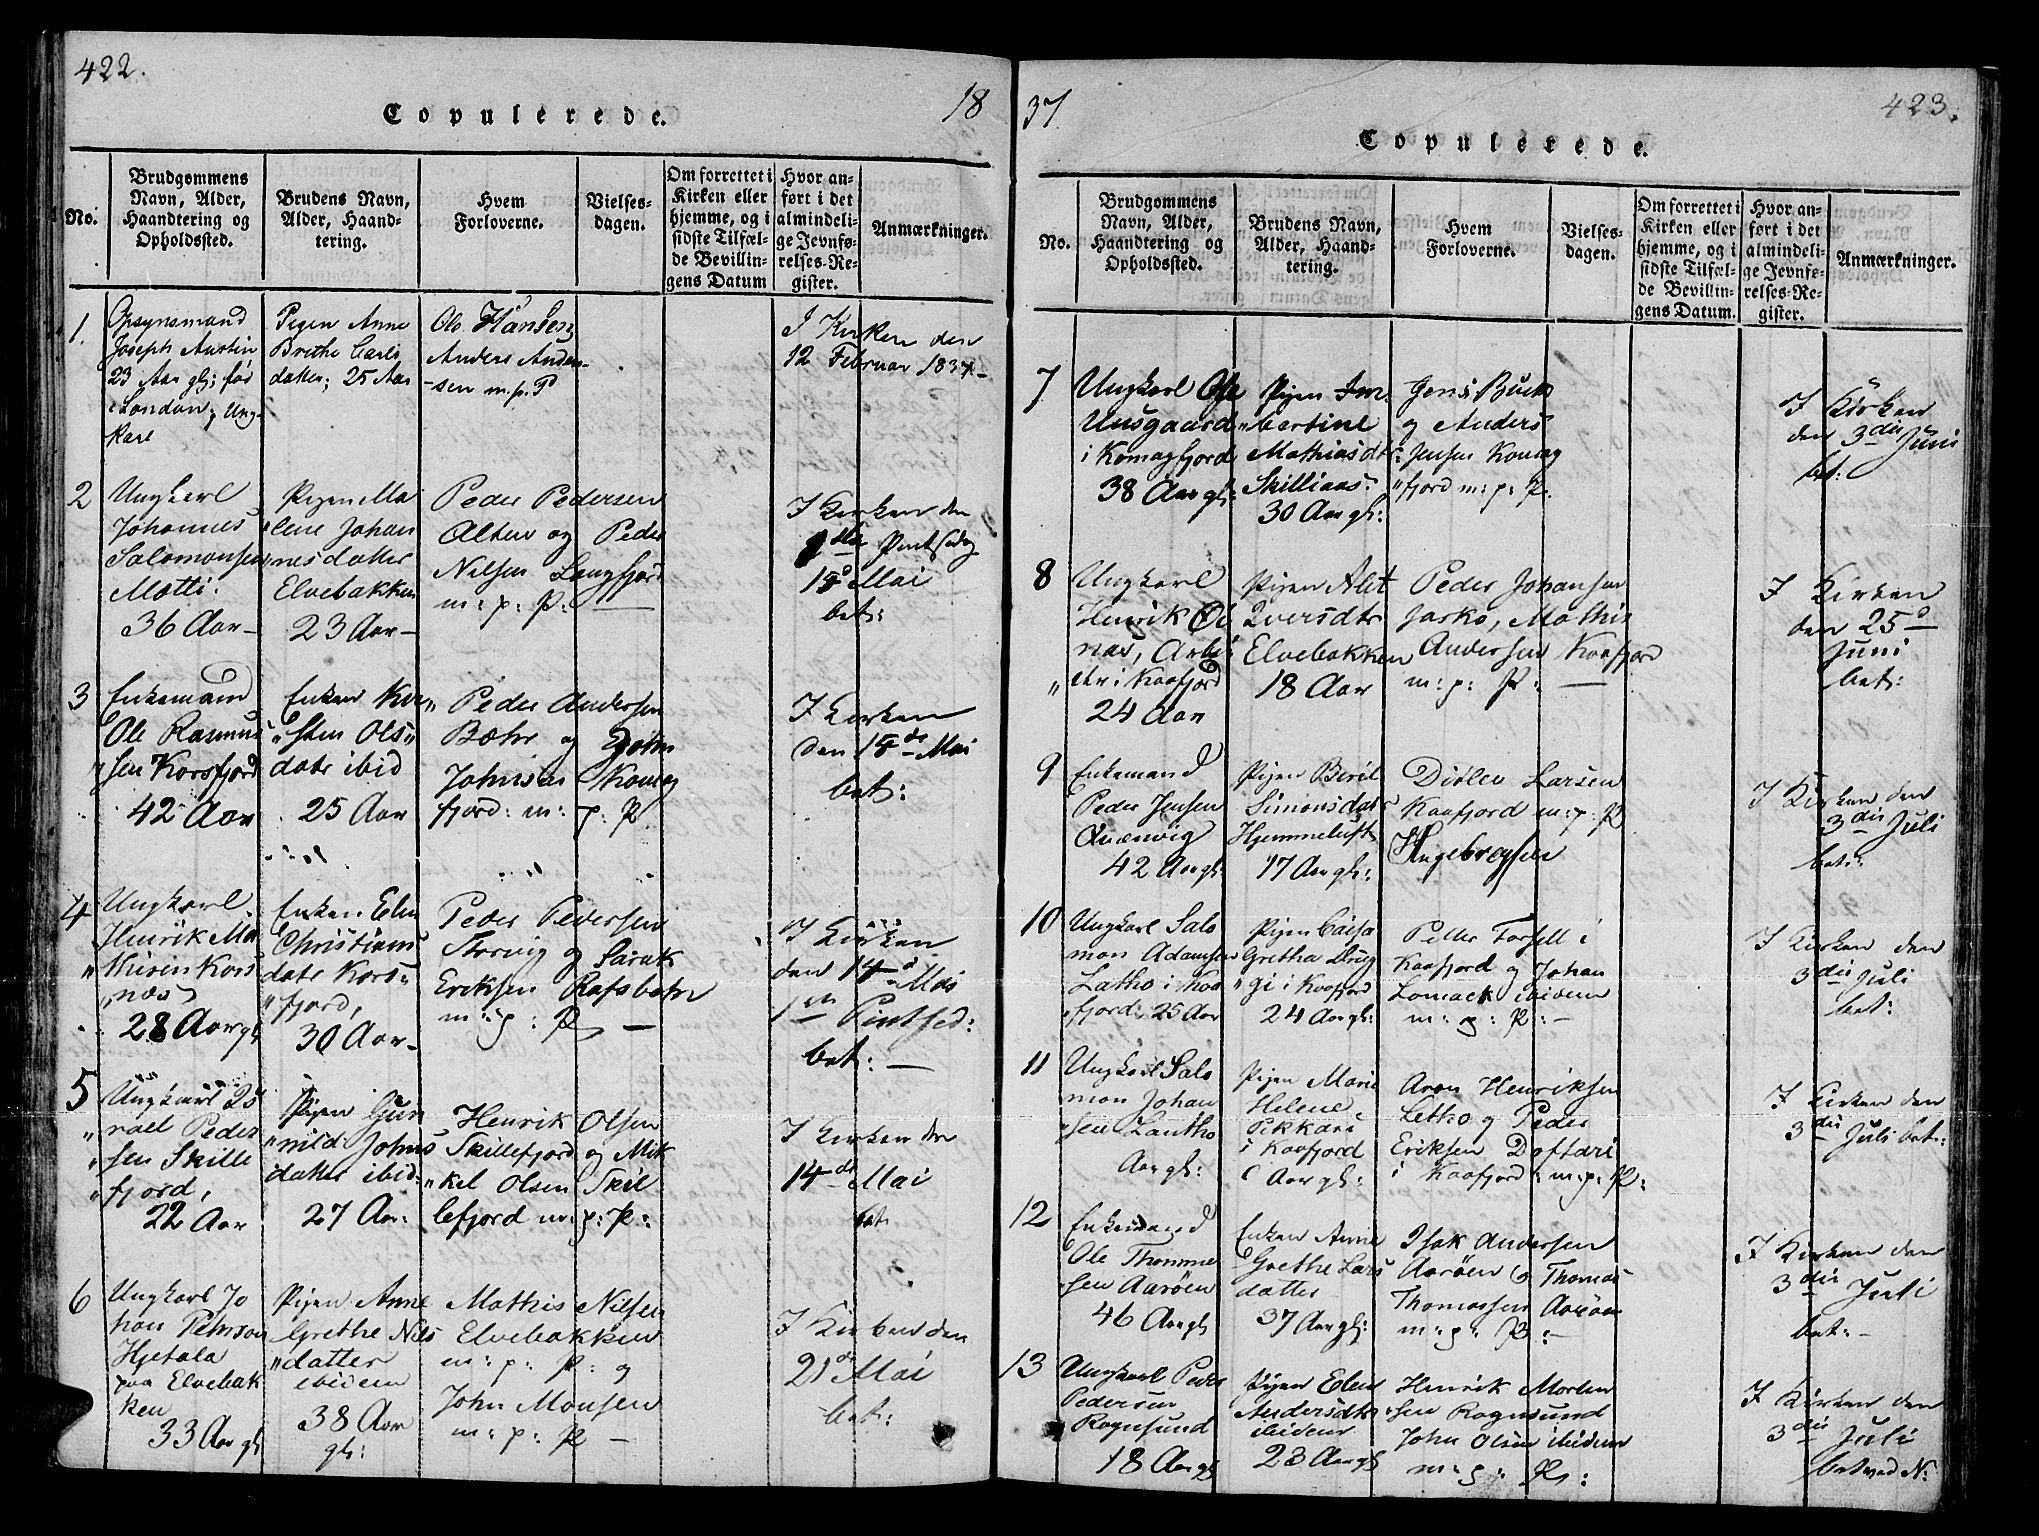 422.
18
Copulerede.
No.
Brudgommens
Navn, Alder,
Haandtering og
Opholdssted.
Brudens Navn,
Alder, Haand-
tering.
Hvem
Forloverne.
Vielses-
dagen.
Om forrettet i
Kirken eller
hjemme, og i
sidste Tilfæl-
de Bevillin-
gens Datum
Hvor an-
ført i det
almindeli-
ge Jevnfø-
relses-Re-
gister.
Anmærkninger.
1.
Opsynsmand
Joseph Austin
23 Aar gl; fød
i London; Ung-
karl
Pigen Anne
Brithe Carls
datter; 25 Aar
Ole Hansen
Anders Ander-
-sen m. p. P
I Kirken den
12 Februar 1837-
2
Ungkarl
Johannes
Salomonsen
Motti.
36 Aar-
Pigen Ma
lene Johan
nesdatter
Elvebakken
23 Aar-
Peder Pedersen
Alten og Peder
Nilsen Langfjord
m: p: P:
I Kirken den
Pintsedag
Mai
bet:
3
Enkemand
Ole Rasmus
"sen Korsfjord
42 Aar
Enken Kir
"sten Ols"
datr ibid
25 Aar
Peder Andersen
Bæhr og John
Johnsen Komag
fjord: m: p: P.
I Kirken
den Mai
bet:
4
Ungkarl
Henrik Ma
Kors
næs
28 Aar gl
Enken Elen
Christians
datr Kors-
"fjord,
30 Aar-
Peder Pedersen
og Sarak
Eriksen Rafsbotn
m: p: P, -
I Kirken
den 14 Mai
Pintsed:
bet: -
5
Ungkarl Is
"rael Peder
"sen Skille
"fjord,
22 Aar
Pigen Gun
"nild Johns
datter ibid:
27 Aar:
Henrik Olsen
Skillefjord og Mik
"kel Olsen Skil
lefjord m: p: P:
I Kirken den
14 de Mai
bet:
6
Ungkarl Jo
han Pehrson
Hjetala
paa Elvebak
ken
33 Aar gl
Pigen Anne
Grethe Nils
"datter
ibidem
38 Aar
gl:
Mathis Nilsen
Elvebakken
m: p: P: og
John Monsen
m: p: P -
I Kirken den
21 de Mai
bet:
37.
423.
Copulerede.
No.
Brudgommens
Navn, Alder,
Haandtering og
Opholdssted.
Brudens Navn,
Alder, Haand-
tering.
Hvem
Forloverne.
Vielses-
dagen.
Om forrettet i
Kirken eller
hjemme, og i
sidste Tilfæl-
de Bevillin-
gens Datum.
Hvor an-
ført i det
almindeli-
ge Jevnfø-
relses-Re-
gister.
Anmærkninger.
7
Ungkarl Ole
Uusgaard
i Komagfjord
38 Aar gl:
Pigen Im
"bertine
Mathiasdtr
Skillias:
30 Aar gl:
Jens Buck
og Anders
Jensen Komag
"fjord m: p: P:
I Kirken
den 3die Juni
bet:
8
Ungkarl
Henrik Ol
nær, Arbei
"der i Kaafjord
24 Aar
Pigen Alet
Iversdtr
Elvebakken
18 Aar
Peder Johansen
Jasko, Mathis
Andersen Kaafjord
m: p: P: -
I Kirken
den 25
Juni
bet:
9
Enkemand
Peder Jensen
Qvænvig
42 Aar gl:
Pigen Berit
Simonsdatr
Hjemmeluft
17 Aar gl:
Ditlev Larsen
Kaafjord m: p: P
H Ingebregtsen
I Kirken den
3die Juli
bet:
10
Ungkarl Salo
mon Adamsen
Latho i Kaa
"fjord 25 Aar
Pigen Caisa
Gretha Drug
"gi i Kaafjord
24 Aar gl:
Petter Forsell i
Kaafjord og Johan
Lomack ibidem
m: p: P: -
I Kirken den
3die Juli
bet:
11
Ungkarl Salo
mon Johan
"sen Lantho
Aar gl:
Pigen Marie
Helene
Pekkari
i Kaafjord
Aar gl:
Aron Henriksen
Letho og Peder
Eriksen
i Kaafjord: m: p: P:
I Kirken den
3die Juli bet:
12
Enkemand
Ole Thomme
"sen Aarøen
46 Aar gl
Enken Anne
Grethe Lars
datter
37 Aar gl:
Isak Andersen
Aarøen og Thomas
Thomassen Aarøen
m: p: P: -
I Kirken den
3die Juli
bet: -
13
Ungkarl Peder
Pedersen
Rognsund
18 Aar gl
Pigen Elen
Andersdtr
ibidem
23 Aar gl
Henrik Morten
"sen Rognsund
John Olsen ibidem
m: p: P:
I Kirken den
3die Juli
bet ved N: